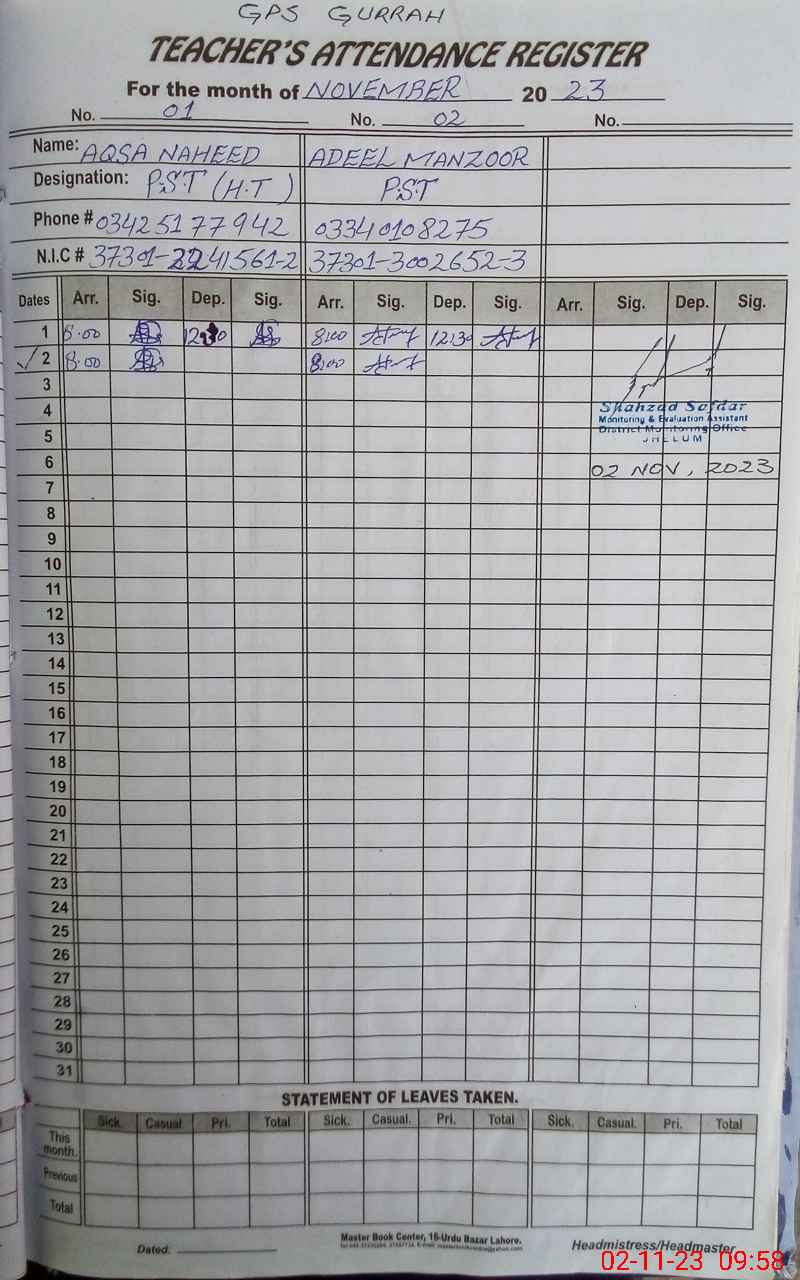 GPS GURRAH
TEACHER'S ATTENDANCE REGISTER
For the month of NOVEMBER 20 23
No. 01 No. 02 No.
Name: AQSA NAHEED ADEEL MANZOOR
Designation: P.S.T (H.T) P.S.T
Phone # 03425177942 03340108275
N.I.C # 37301-2241561-2 37301-3002652-3
Dates Arr. Sig. Dep. Sig. Arr. Sig. Dep. Sig. Arr. Sig. Dep. Sig.
1 8.00 12:30 8:00 12:30
2 8.00 8:00
3
4 Shahzad Safdar
Monitoring & Evaluation Assistant
5 District Monitoring Office
JHELUM
6 02 NOV, 2023
7
8
9
10
11
12
13
14
15
16
17
18
19
20
21
22
23
24
25
26
27
28
29
30
31
STATEMENT OF LEAVES TAKEN.
Sick. Casual. Pri. Total Sick. Casual. Pri. Total Sick. Casual. Pri. Total
This month.
Previous
Total
Dated. Master Book Center, 16-Urdu Bazar Lahore. Headmistress/Headmaster
02-11-23 09:58